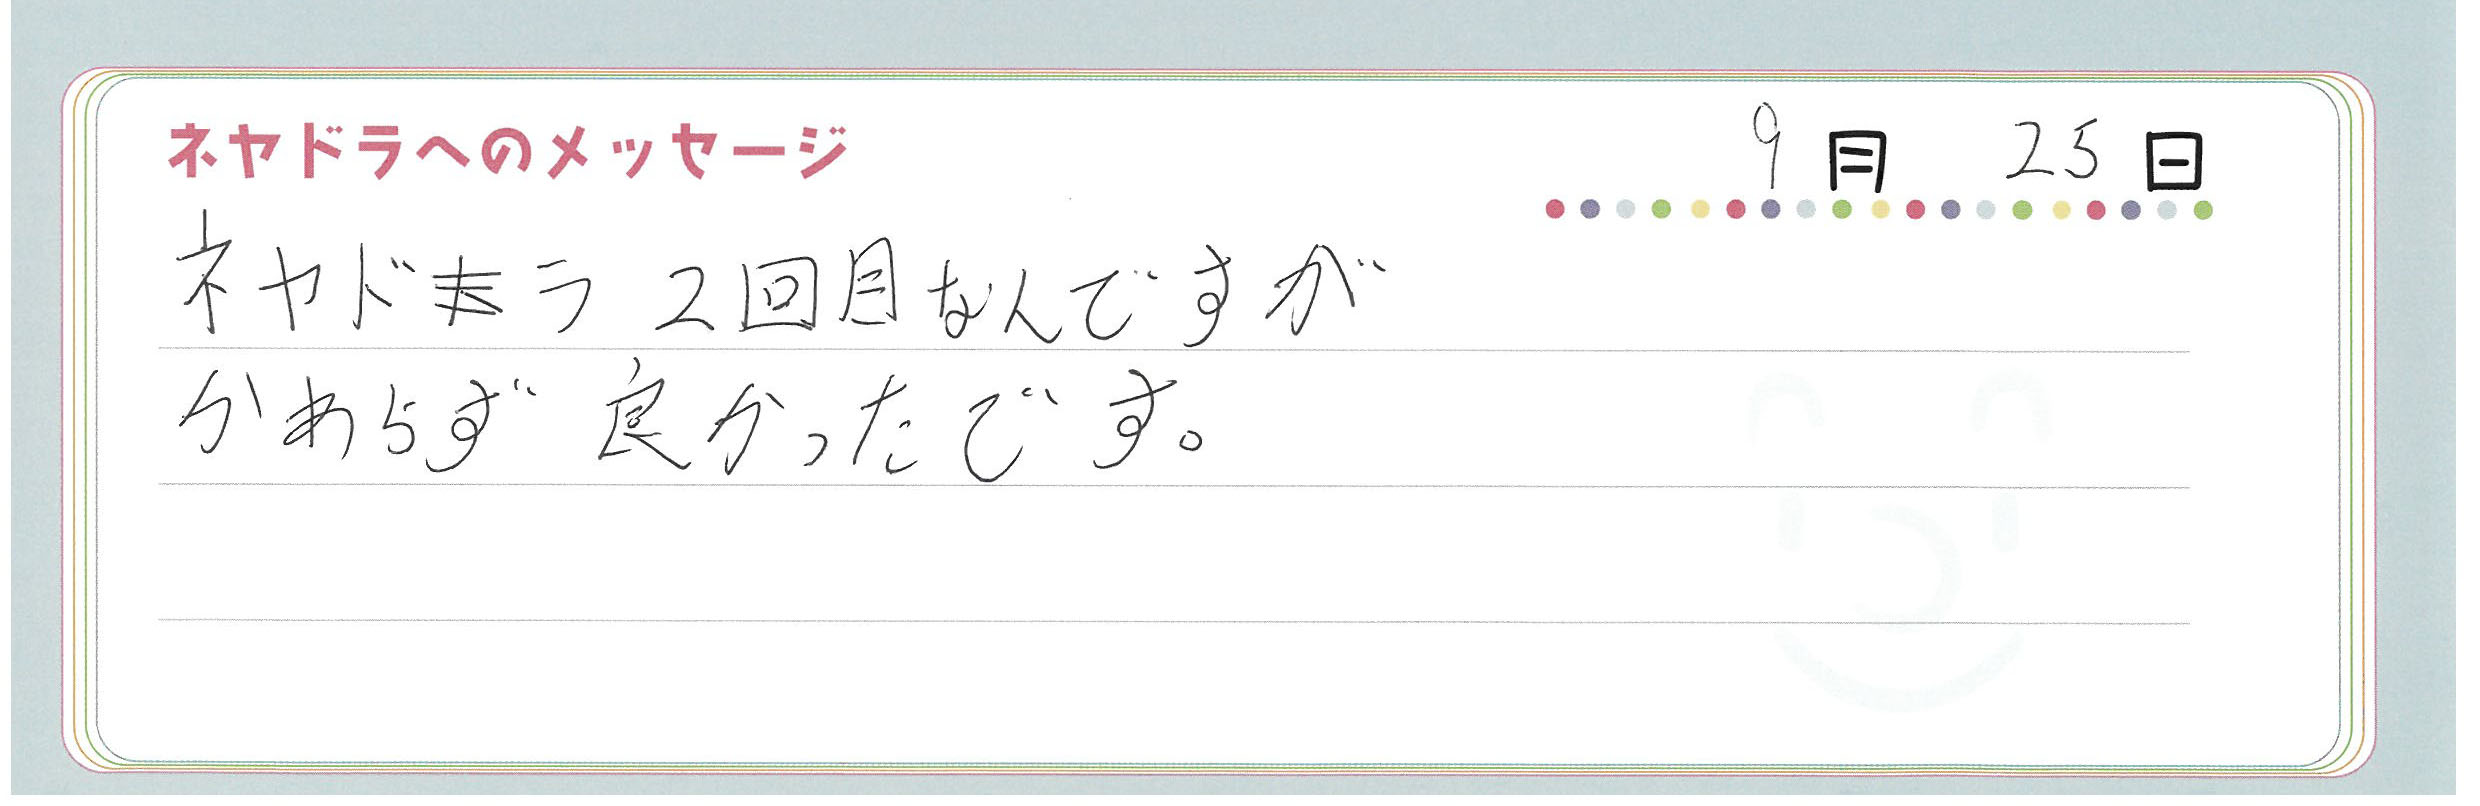 ネヤドラへのメッセージ
9月 25日
ネヤドラ 2回目なんですが
かわらず 良かったです。